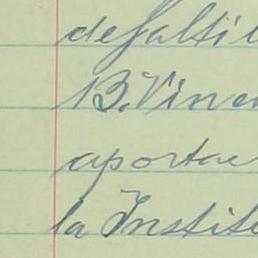 defalti
B. Vince
aportac
la Institu